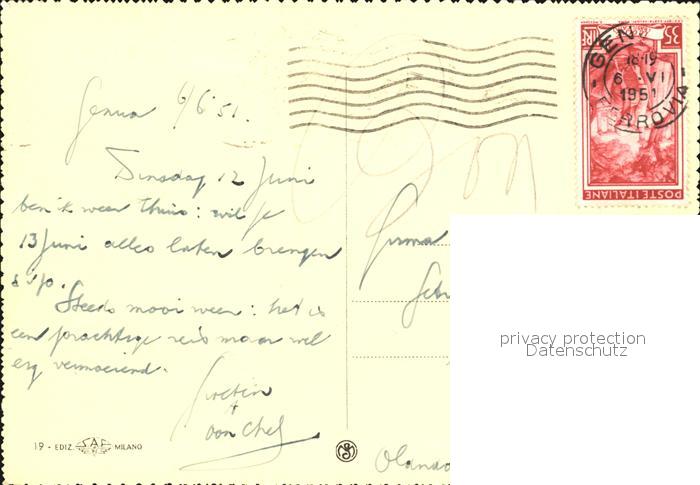 Genua 6/6 '51.
Dinsdag 12 Juni
ben ik weer thuis: wil je
13 Juni alles laten brengen
s.v.p.
Steeds mooi weer: het is
een prachtige reis maar wel
erg vermoeiend.
Groeten
19 - EDIZ. SAF MILANO
Firma
Olanda
LIRE 35
POSTE ITALIANE
GEN
18-19
6 VI
1951
FERROVIA
privacy protection
Datenschutz